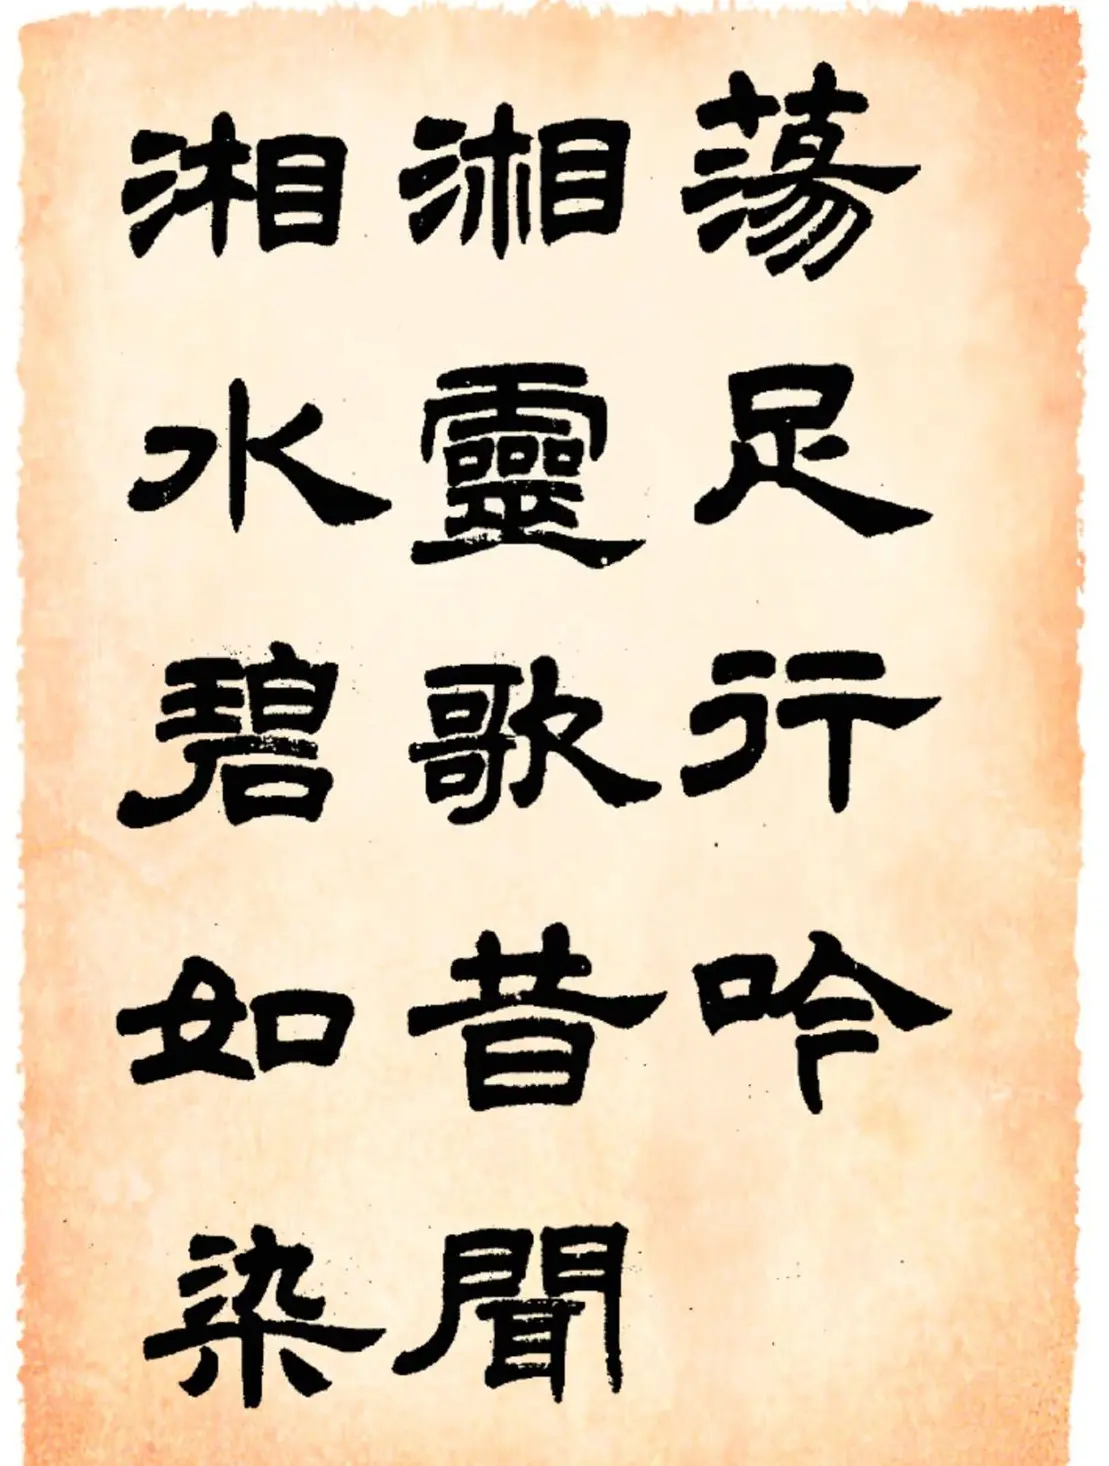 湘水碧如染
湘靈歌昔聞
蕩足行吟